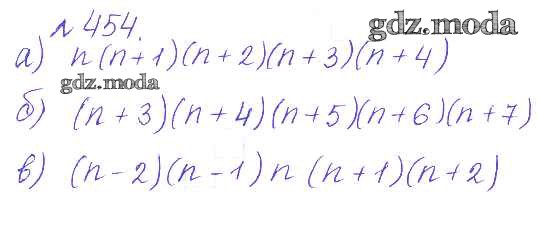 № 454.
gdz.moda
а) n(n+1)(n+2)(n+3)(n+4)
gdz.moda
б) (n+3)(n+4)(n+5)(n+6)(n+7)
в) (n-2)(n-1)n(n+1)(n+2)